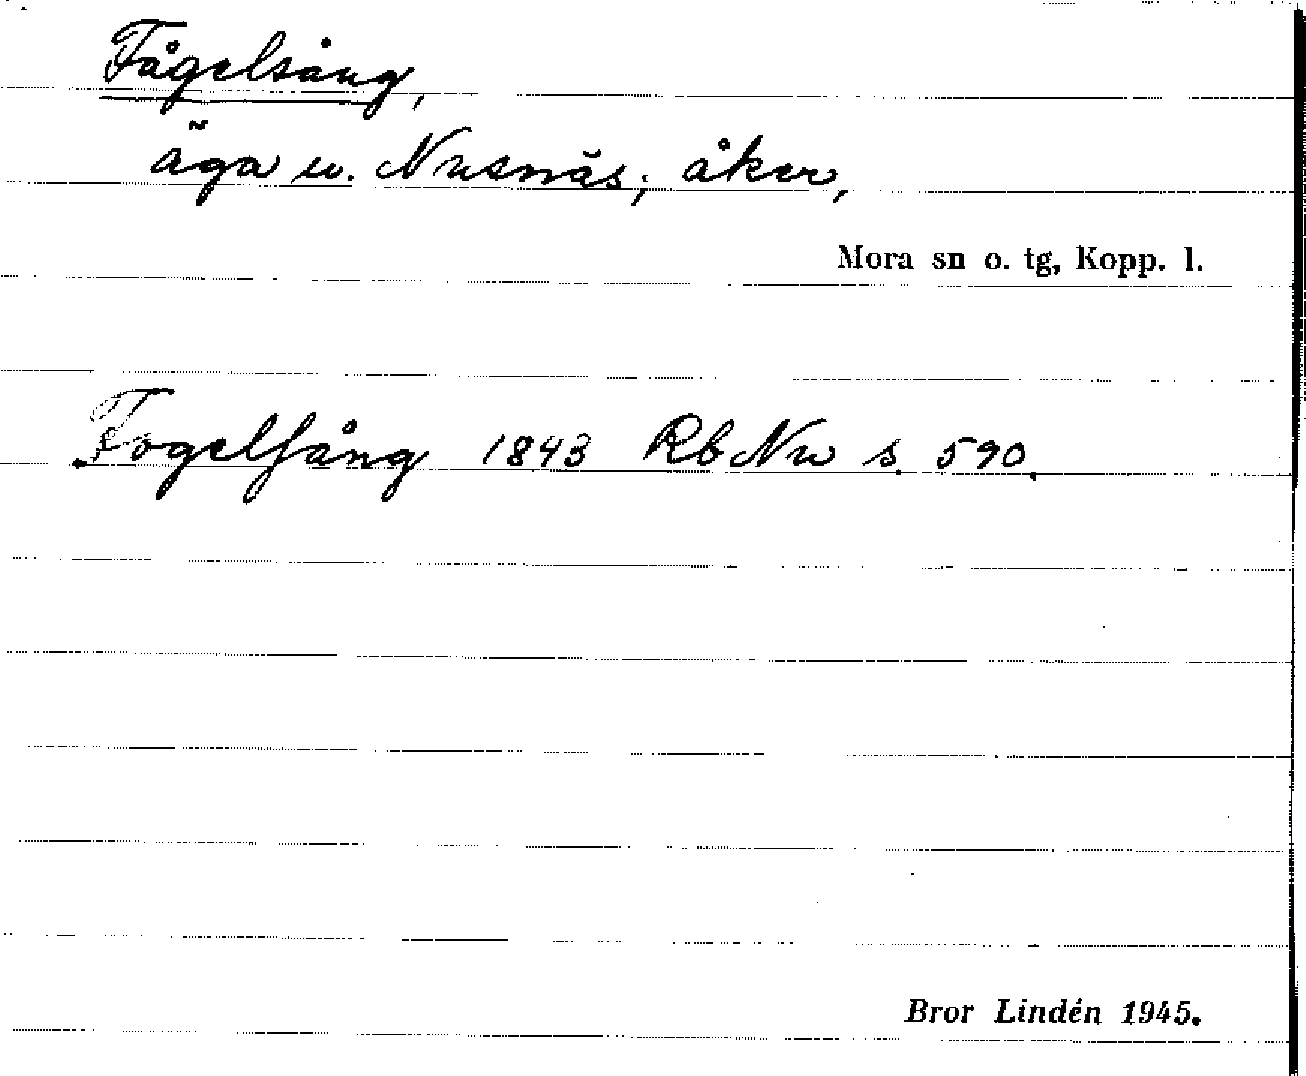 Fågelsång,
äga u. Nusnäs; åker,
Mora sn o. tg, Kopp. l.
Fogelsång 1843 Rb Nu s. 590.
Bror Lindén 1945.